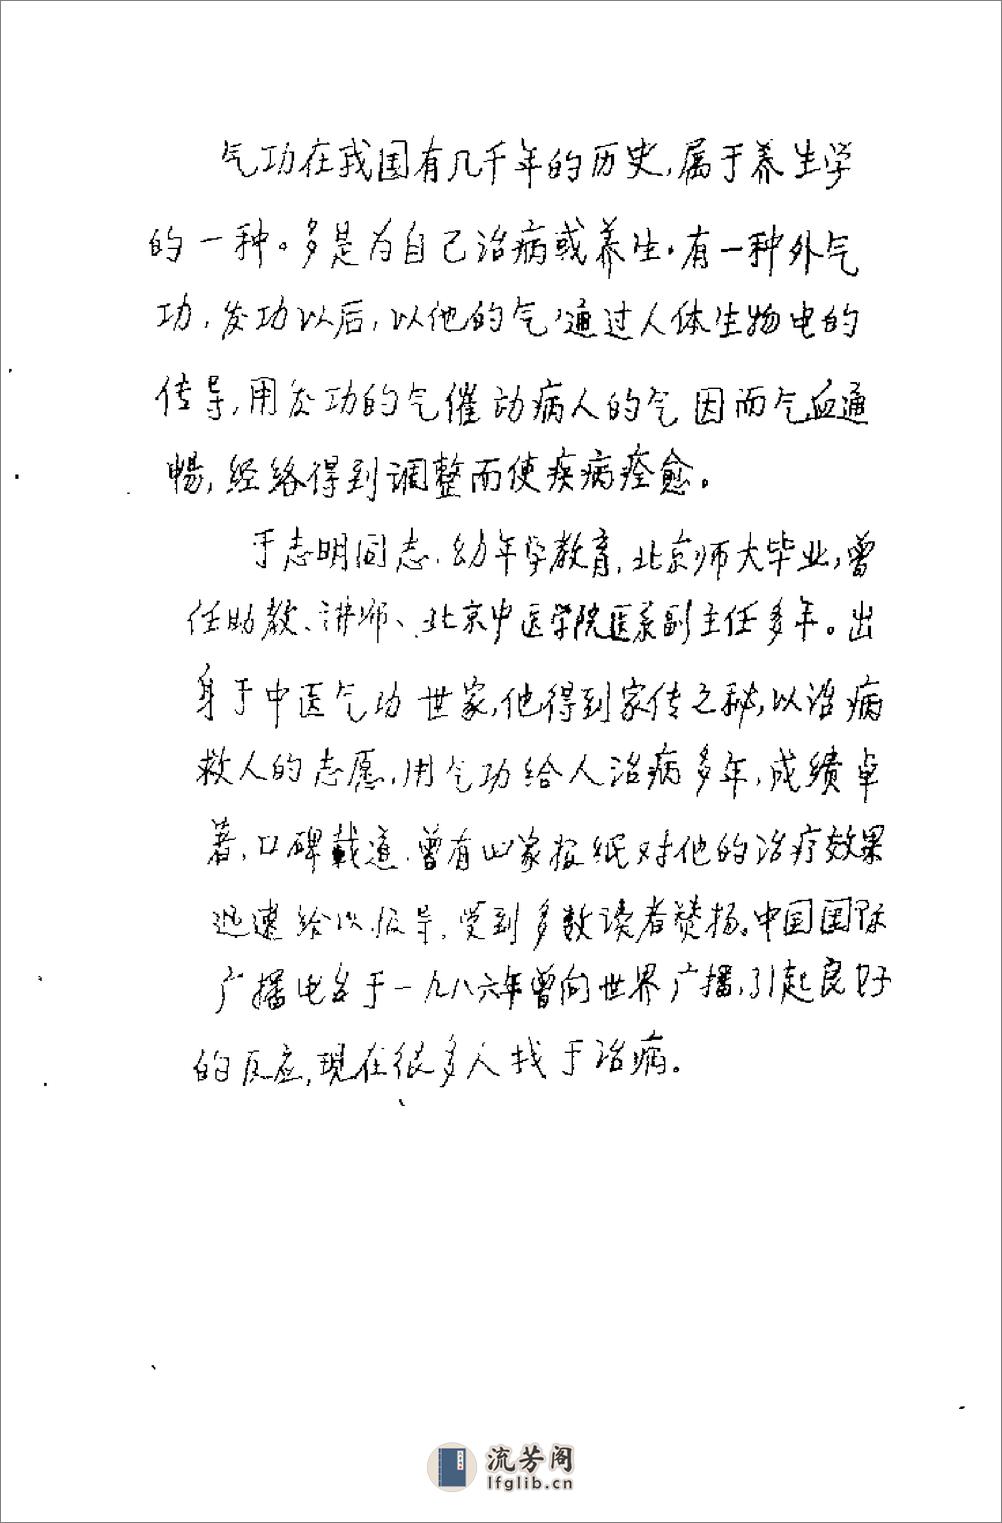 气功在我国有几千年的历史，属于养生学
的一种。多是为自己治病或养生。有一种外气
功，发功以后，以他的气，通过人体生物电的
传导，用发功的气催动病人的气因而气血通
畅，经络得到调整而使疾病痊愈。
于志明同志，幼年学教育，北京师大毕业，曾
任助教、讲师、北京中医学院医系副主任多年。出
身于中医气功世家，他得到家传之秘，以治病
救人的志愿，用气功给人治病多年，成绩卓
著，口碑载道，曾有四家报纸对他的治疗效果
迅速给以报导，受到多数读者赞扬。中国国际
广播电台于一九八六年曾向世界广播，引起良好
的反应，现在很多人找于治病。
流芳阁
lfglib.cn